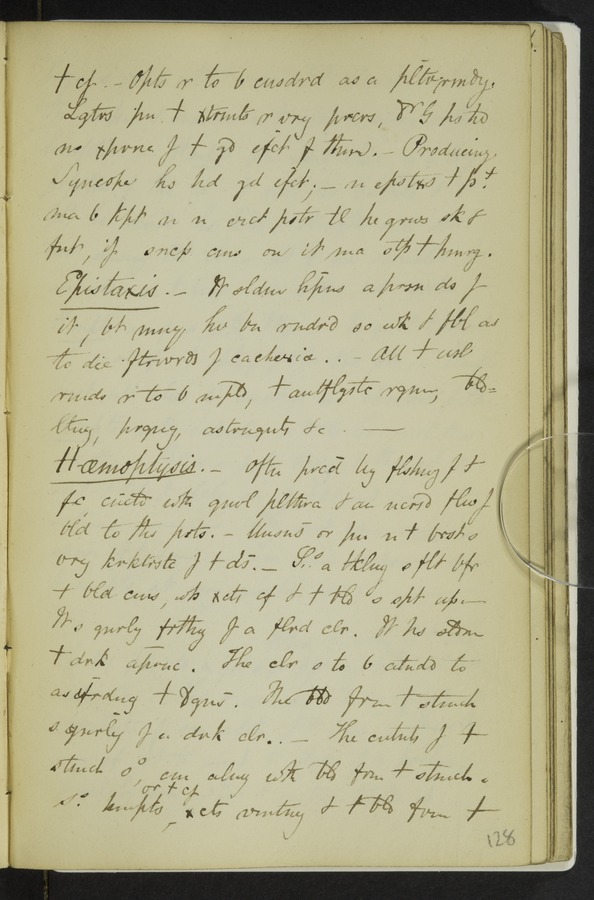 † cf. - Opts r to b cnsdrd as a pltv rmdy.
Lgtrs pn † xtrmts r vry prcrs, Dr G hs hd
no xprnc f † gd efct f thm. - Producing
Syncope hs hd gd efct; - n epstxs † pt
ma b kpt n n erct pstr tl he grws sk &
fnt, if sncp cms on it ma stp † hmrg.
Epistaxis. - It sldm hpns a prsn ds f
it, bt mny hv bn rndrd so wk & fbl as
to die ftrwrds f cachexia .. - All † usl
rmds r to b mpld, † antflgstc rgmn, bld=
ltng, prgng, astrngnts &c. —
Hæmoptysis. - Oftn prcd by flshng f †
fc, cnctd wth gnrl plthra & an ncrsd flw f
bld to ths prts. - Unsns or pn n † brst s
vry krktrstc f † ds. - Ss a tklng s flt bfr
† bld cms, wh xcts cf & † bld s spt up -
It s gnrly frthy f a flrd clr. It hs sldm
† drk aprnc. The clr s to b atndd to
as afrdng † Dgns. The bld frm † stmch
s gnrly f a drk clr. . - The cntnts f †
stmch so cm alng wth bld frm † stmch.
or † cf
xcts vmtng & † bld frm †
128